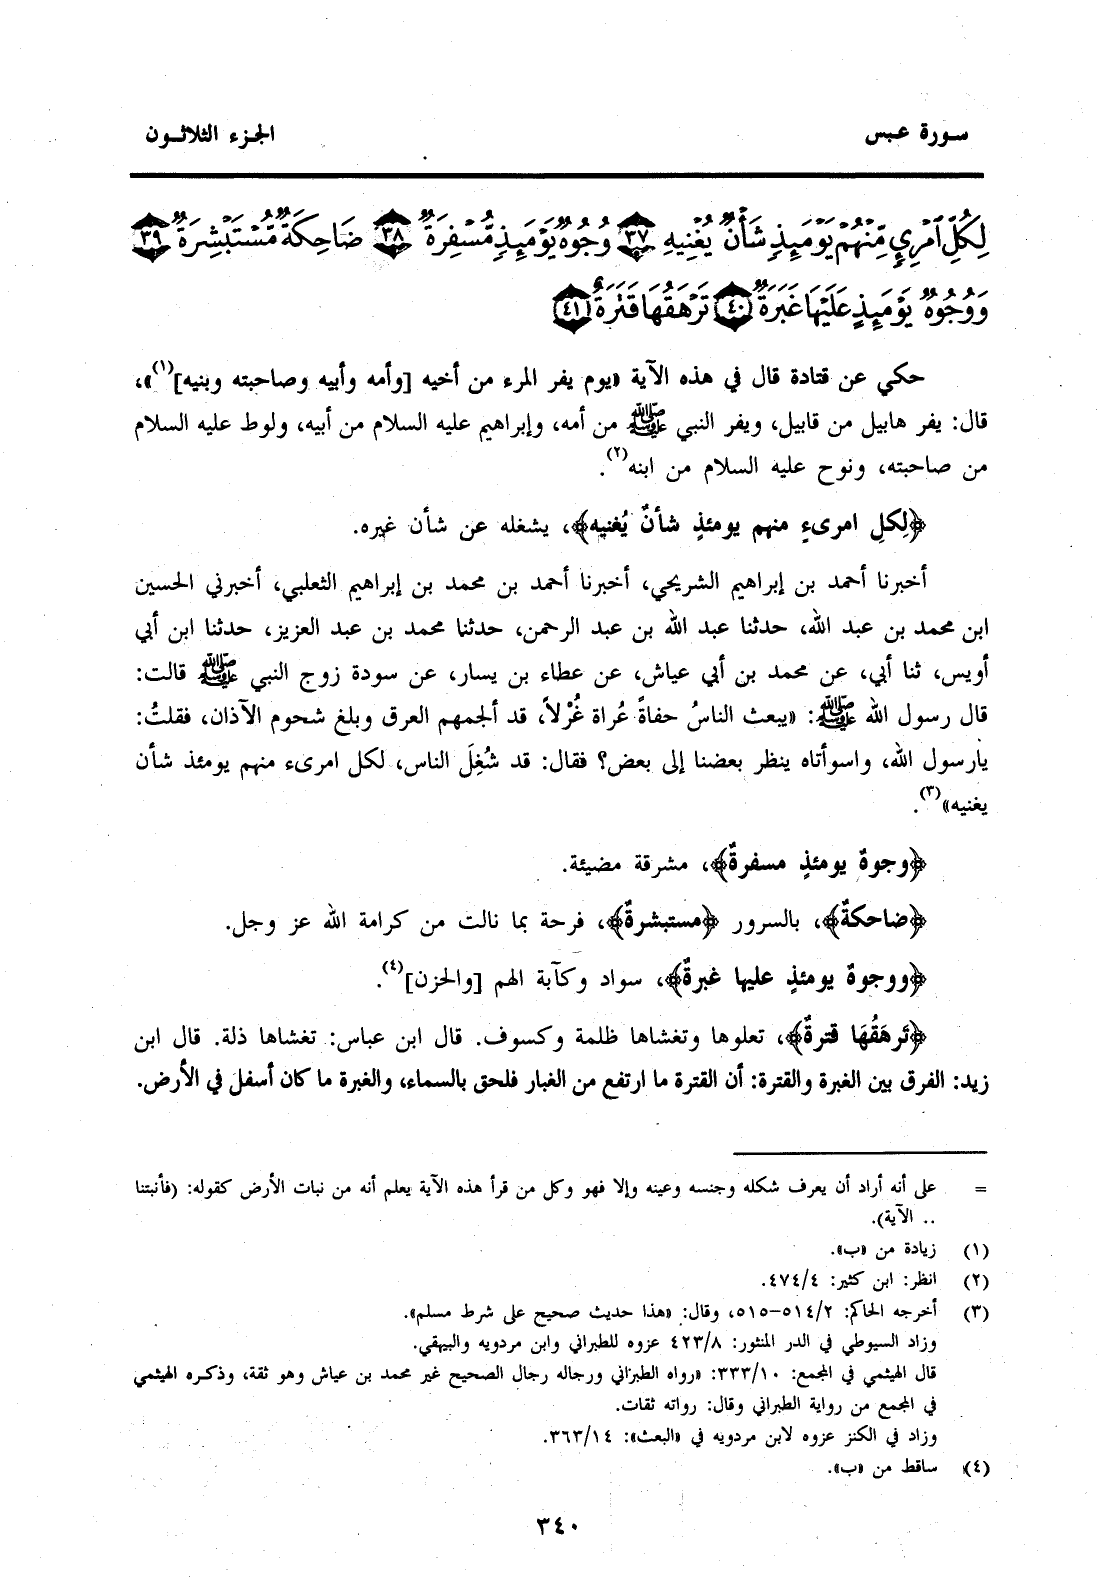 سورة عبس
الجزء الثلاثون
لِكُلِّ ٱمْرِيٍٕ مِّنْهُمْ يَوْمَئِذٍ شَأْنٌ يُغْنِيهِ ٣٧ وُجُوهٌ يَوْمَئِذٍ مُّسْفِرَةٌ ٣٨ ضَاحِكَةٌ مُّسْتَبْشِرَةٌ ٣٩
وَوُجُوهٌ يَوْمَئِذٍ عَلَيْهَا غَبَرَةٌ ٤٠ تَرْهَقُهَا قَتَرَةٌ ٤١
حكي عن قتادة قال في هذه الآية «يوم يفر المرء من أخيه [وأمه وأبيه وصاحبته وبنيه](١)»،
قال: يفر هابيل من قابيل، ويفر النبي ﷺ من أمه، وإبراهيم عليه السلام من أبيه، ولوط عليه السلام
من صاحبته، ونوح عليه السلام من ابنه(٢).
﴿لِكلِ امرىءٍ منهم يومئذٍ شأنٌ يُغنيه﴾، يشغله عن شأن غيره.
أخبرنا أحمد بن إبراهيم الشريحي، أخبرنا أحمد بن محمد بن إبراهيم الثعلبي، أخبرني الحسين
ابن محمد بن عبد الله، حدثنا عبد الله بن عبد الرحمن، حدثنا محمد بن عبد العزيز، حدثنا ابن أبي
أويس، ثنا أبي، عن محمد بن أبي عياش، عن عطاء بن يسار، عن سودة زوج النبي ﷺ قالت:
قال رسول الله ﷺ: «يبعث الناسُ حفاةً عُراة غُرْلاً، قد ألجمهم العرق وبلغ شحوم الآذان، فقلتُ:
يارسول الله، واسوأتاه ينظر بعضنا إلى بعض؟ فقال: قد شُغِلَ الناس، لكل امرىء منهم يومئذ شأن
يغنيه»(٣).
﴿وجوهٌ يومئذٍ مسفرةٌ﴾، مشرقة مضيئة.
﴿ضاحكةٌ﴾، بالسرور ﴿مستبشرةٌ﴾، فرحة بما نالت من كرامة الله عز وجل.
﴿ووجوهٌ يومئذٍ عليها غبرةٌ﴾، سواد وكآبة الهم [والحزن](٤).
﴿تَرهَقُهَا قترةٌ﴾، تعلوها وتغشاها ظلمة وكسوف. قال ابن عباس: تغشاها ذلة. قال ابن
زيد: الفرق بين الغبرة والقترة: أن القترة ما ارتفع من الغبار فلحق بالسماء، والغبرة ما كان أسفل في الأرض.
= على أنه أراد أن يعرف شكله وجنسه وعينه وإلا فهو وكل من قرأ هذه الآية يعلم أنه من نبات الأرض كقوله: (فأنبتنا
.. الآية).
(١) زيادة من «ب».
(٢) انظر: ابن كثير: ٤٧٤/٤.
(٣) أخرجه الحاكم: ٥١٤/٢-٥١٥، وقال: «هذا حديث صحيح على شرط مسلم».
وزاد السيوطي في الدر المنثور: ٤٢٣/٨ عزوه للطبراني وابن مردويه والبيهقي.
قال الهيثمي في المجمع: ٣٣٣/١٠: «رواه الطبراني ورجاله رجال الصحيح غير محمد بن عياش وهو ثقة، وذكره الهيثمي
في المجمع من رواية الطبراني وقال: رواته ثقات.
وزاد في الكنز عزوه لابن مردويه في «البعث»: ٣٦٣/١٤.
(٤) ساقط من «ب».
٣٤٠